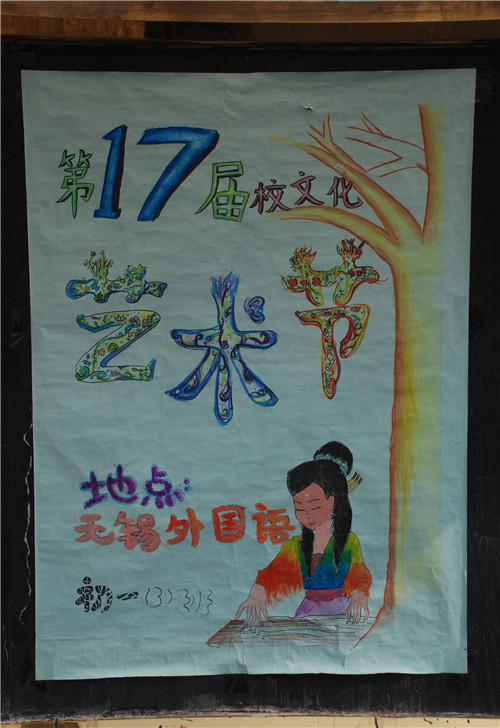 第17届校文化
艺术节
地点:
无锡外国语
初一(3)班